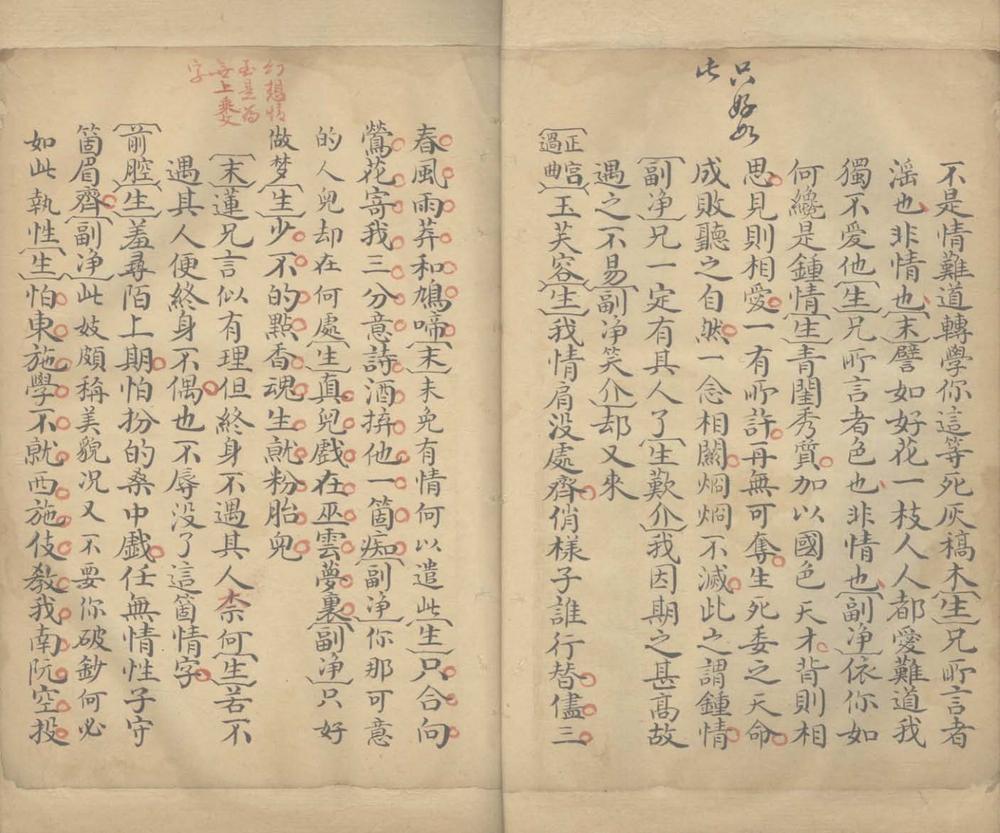 只好如
此
不是情難道轉學你這等死灰稿木〔生〕兄所言者
淫也非情也〔末〕譬如好花一枝人人都愛難道我
獨不愛他〔生〕兄所言者色也非情也〔副净〕依你如
何纔是鍾情〔生〕青閨秀質加以國色天才背則相
思見則相愛一有所許再無可奪生死委之天命
成敗聽之自然一念相關烱烱不滅此之謂鍾情
〔副净〕兄一定有其人了〔生歎介〕我因期之甚高故
遇之不易〔副净笑介〕却又來
〔正宫過曲〕〔玉芙容〕〔生〕我情肩没處齊俏樣子誰行替儘三
幻想情
至是爲
無上乘文
字
春風雨葬和鳩啼〔末〕未免有情何以遣此〔生〕只合向
鶯花寄我三分意詩酒拚他一箇痴〔副净〕你那可意
的人兒却在何處〔生〕真兒戲在巫雲夢裏〔副净〕只好
做梦〔生〕少不的點香魂生就粉胎兒
〔末〕蓮兄言似有理但終身不遇其人奈何〔生〕若不
遇其人便終身不偶也不辱没了這箇情字
〔前腔〕〔生〕羞尋陌上期怕扮的桑中戲任無情性子守
箇眉齊〔副净〕此妓頗稱美貌况又不要你破鈔何必
如此執性〔生〕怕東施學不就西施伎教我南阮空投